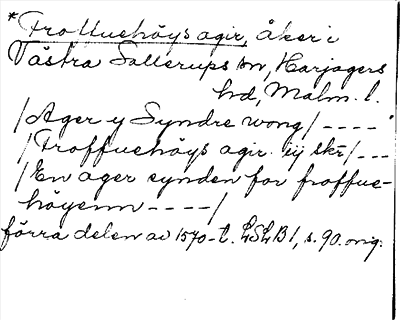 *Froffuehöys agir, åker i
Västra Sallerups sn, Harjagers
hd, Malm. l.
/Ager y Syndre wong/ ----
/Froffuehöys agir. iij skr/ ---
/En ager synden for froffue-
höyenn ----/
förra delen av 1570-t. LSLB1, s. 90. orig.